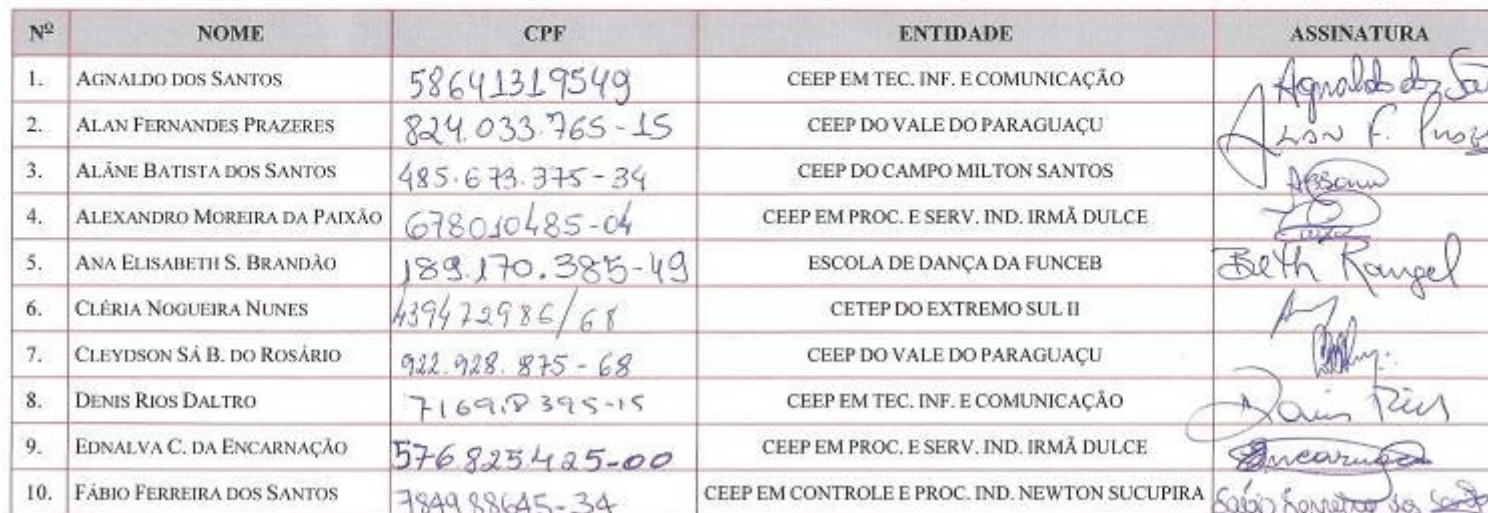 Nº NOME CPF ENTIDADE ASSINATURA
1. AGNALDO DOS SANTOS 58641319549 CEEP EM TEC. INF. E COMUNICAÇÃO Agnaldo dos San
2. ALAN FERNANDES PRAZERES 824.033.765-15 CEEP DO VALE DO PARAGUAÇU ALAN F.
3. ALÂNE BATISTA DOS SANTOS 485.673.375-34 CEEP DO CAMPO MILTON SANTOS
4. ALEXANDRO MOREIRA DA PAIXÃO 678010485-04 CEEP EM PROC. E SERV. IND. IRMÃ DULCE
5. ANA ELISABETH S. BRANDÃO 189.170.385-49 ESCOLA DE DANÇA DA FUNCEB Beth Rangel
6. CLÉRIA NOGUEIRA NUNES 439472986/68 CETEP DO EXTREMO SUL II
7. CLEYDSON SÁ B. DO ROSÁRIO 922.928.875-68 CEEP DO VALE DO PARAGUAÇU
8. DENIS RIOS DALTRO CEEP EM TEC. INF. E COMUNICAÇÃO
9. EDNALVA C. DA ENCARNAÇÃO 576.825.425-00 CEEP EM PROC. E SERV. IND. IRMÃ DULCE
10. FÁBIO FERREIRA DOS SANTOS 784988645-34 CEEP EM CONTROLE E PROC. IND. NEWTON SUCUPIRA Fábio Ferreira dos Santos